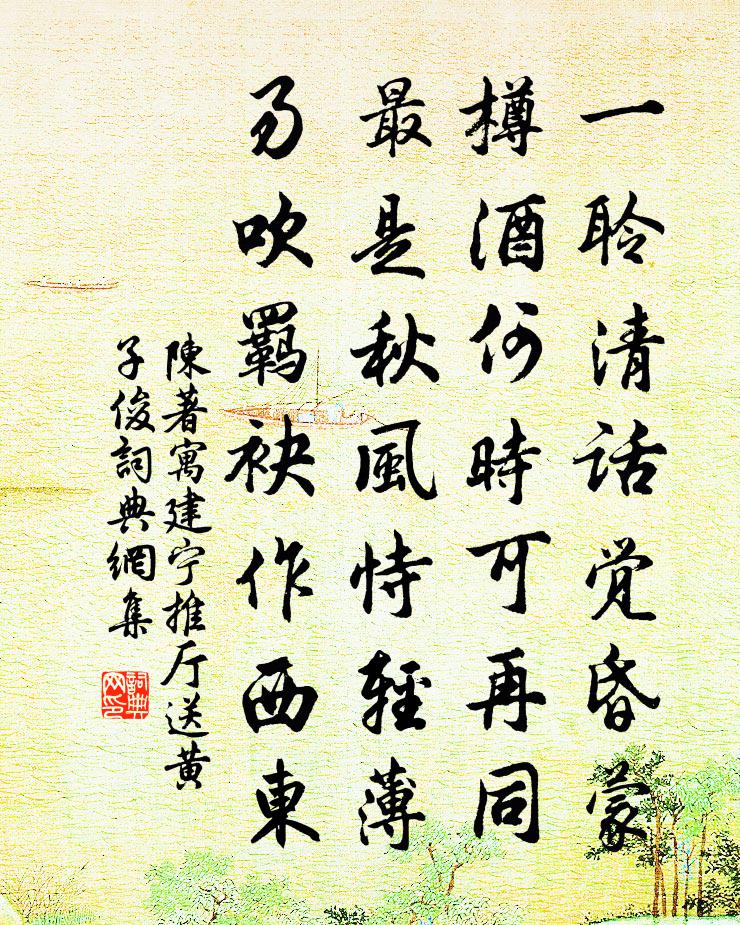 一聆清话觉昏蒙
樽酒何時可再同
最是秋風恃輕薄
易吹羈袂作西東
陳著寓建宁推厅送黄
子俊詞典網集
詞典网印